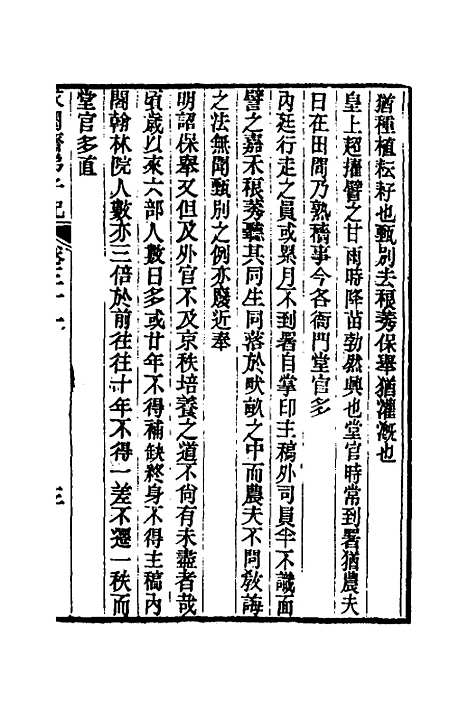 猶種植耘耔也甄別去稂莠保舉猶灌溉也
皇上超擢譬之甘雨時降苗勃然興也堂官時常到署猶農夫
日在田間乃熟穡事今各衙門堂官多
內廷行走之員或累月不到署自掌印主稿外司員半不識面
譬之嘉禾稂莠聽其同生同落於畎畝之中而農夫不問教誨
之法無聞甄別之例亦廢近奉
明詔保舉又但及外官不及京秩培養之道不尙有未盡者哉
頃歲以來六部人數日多或廿年不得補缺終身不得主稿內
閣翰林院人數亦三倍於前往往十年不得一差不遷一秩而
堂官多直